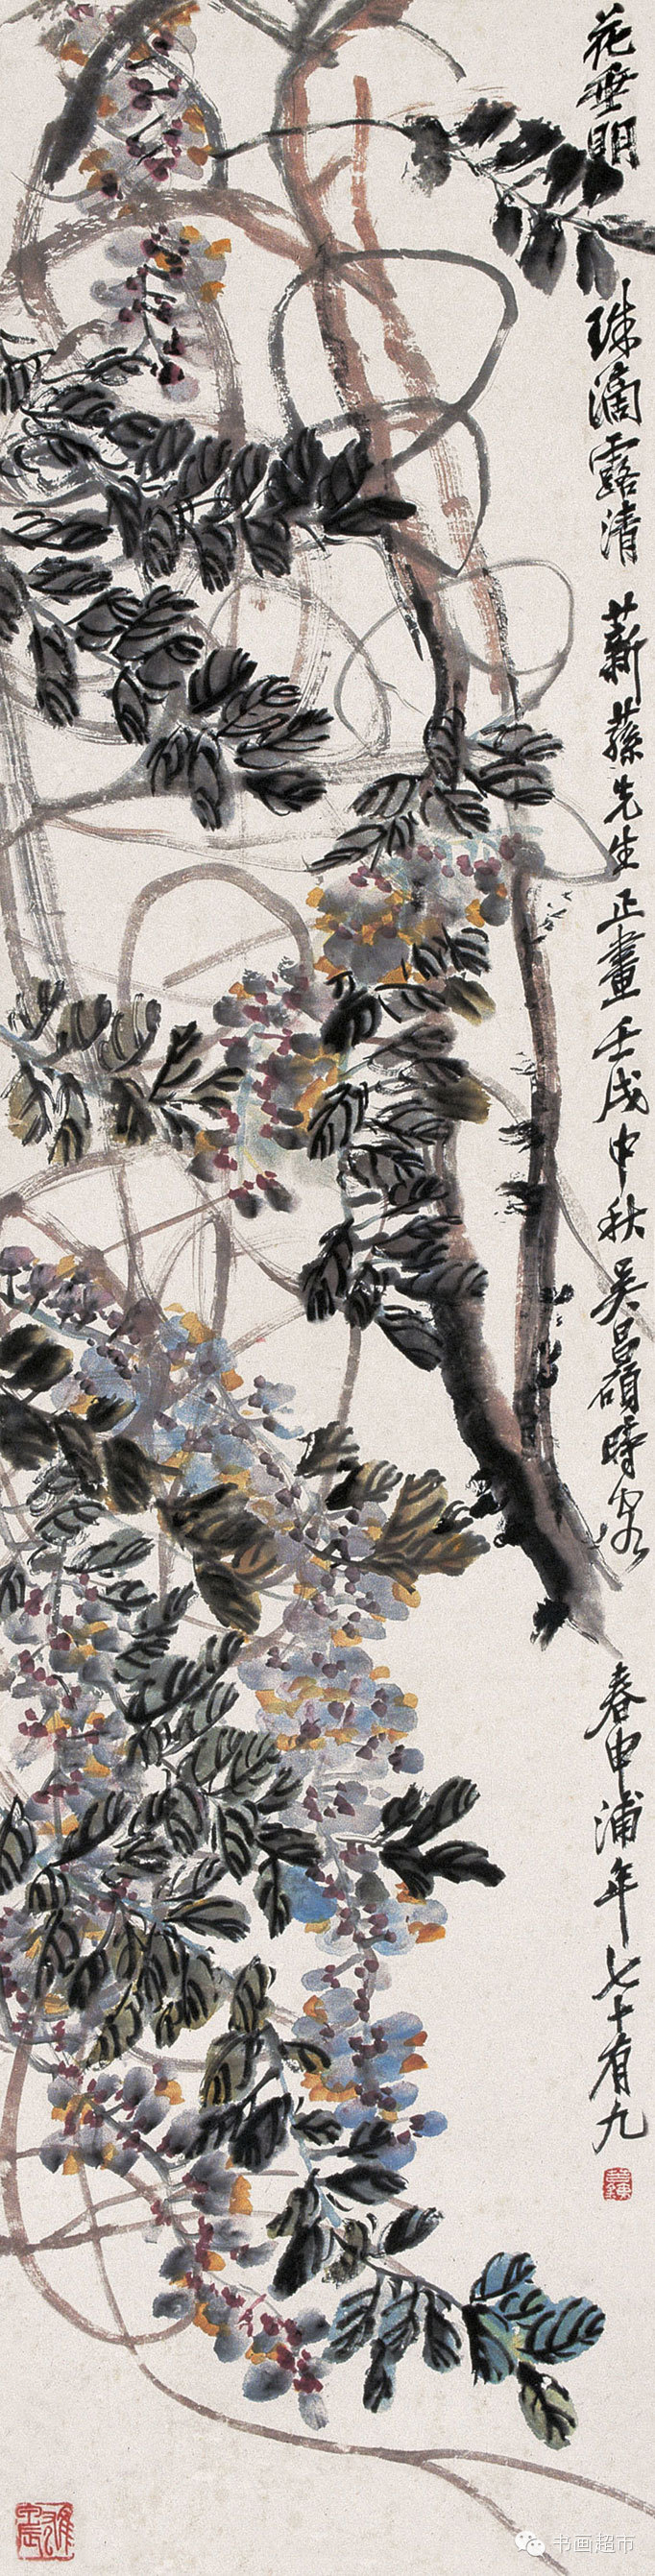 花垂明珠滴露清 薪蓀先生正畫 壬戌中秋 吳昌碩時客春申浦年七十有九
书画超市